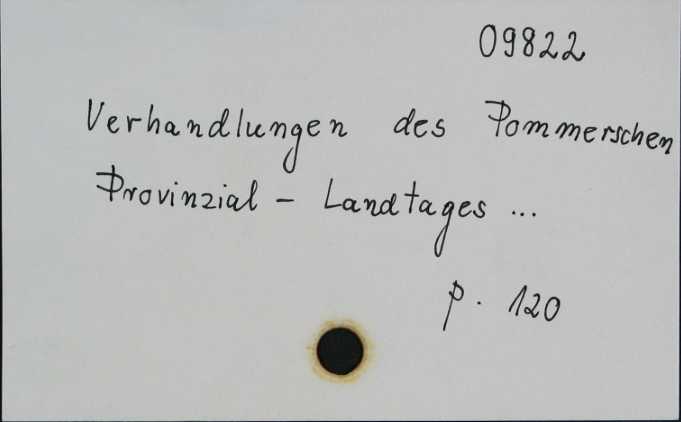 09822
Verhandlungen des Pommerschen
Provinzial - Landtages ...
p. 120